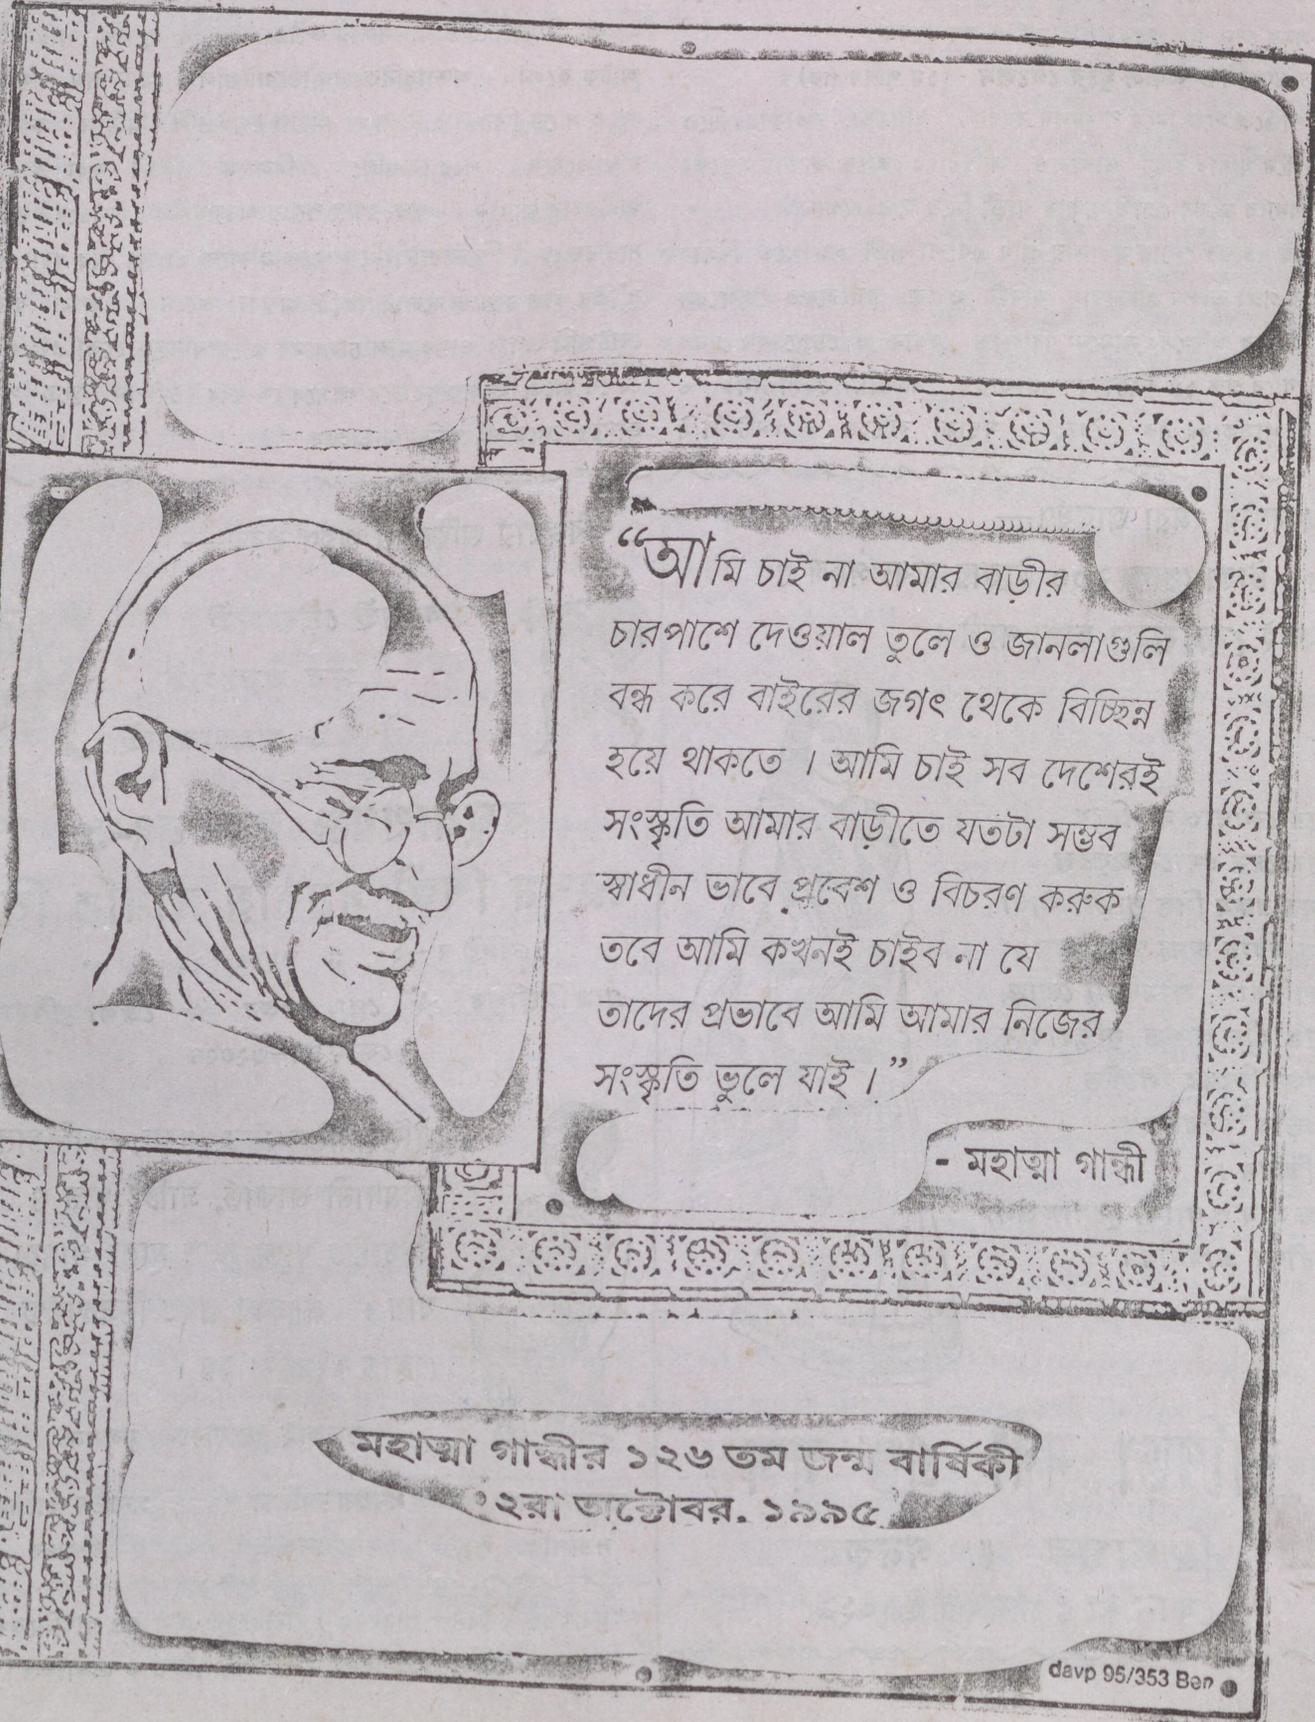 “আমি চাই না আমার বাড়ীর
চারপাশে দেওয়াল তুলে ও জানলাগুলি
বন্ধ করে বাইরের জগৎ থেকে বিচ্ছিন্ন
হয়ে থাকতে । আমি চাই সব দেশেরই
সংস্কৃতি আমার বাড়ীতে যতটা সম্ভব
স্বাধীন ভাবে প্রবেশ ও বিচরণ করুক
তবে আমি কখনই চাইব না যে
তাদের প্রভাবে আমি আমার নিজের
সংস্কৃতি ভুলে যাই ।”
- মহাত্মা গান্ধী
মহাত্মা গান্ধীর ১২৬ তম জন্ম বার্ষিকী
২রা অক্টোবর. ১৯৯৫
davp 95/353 Ben